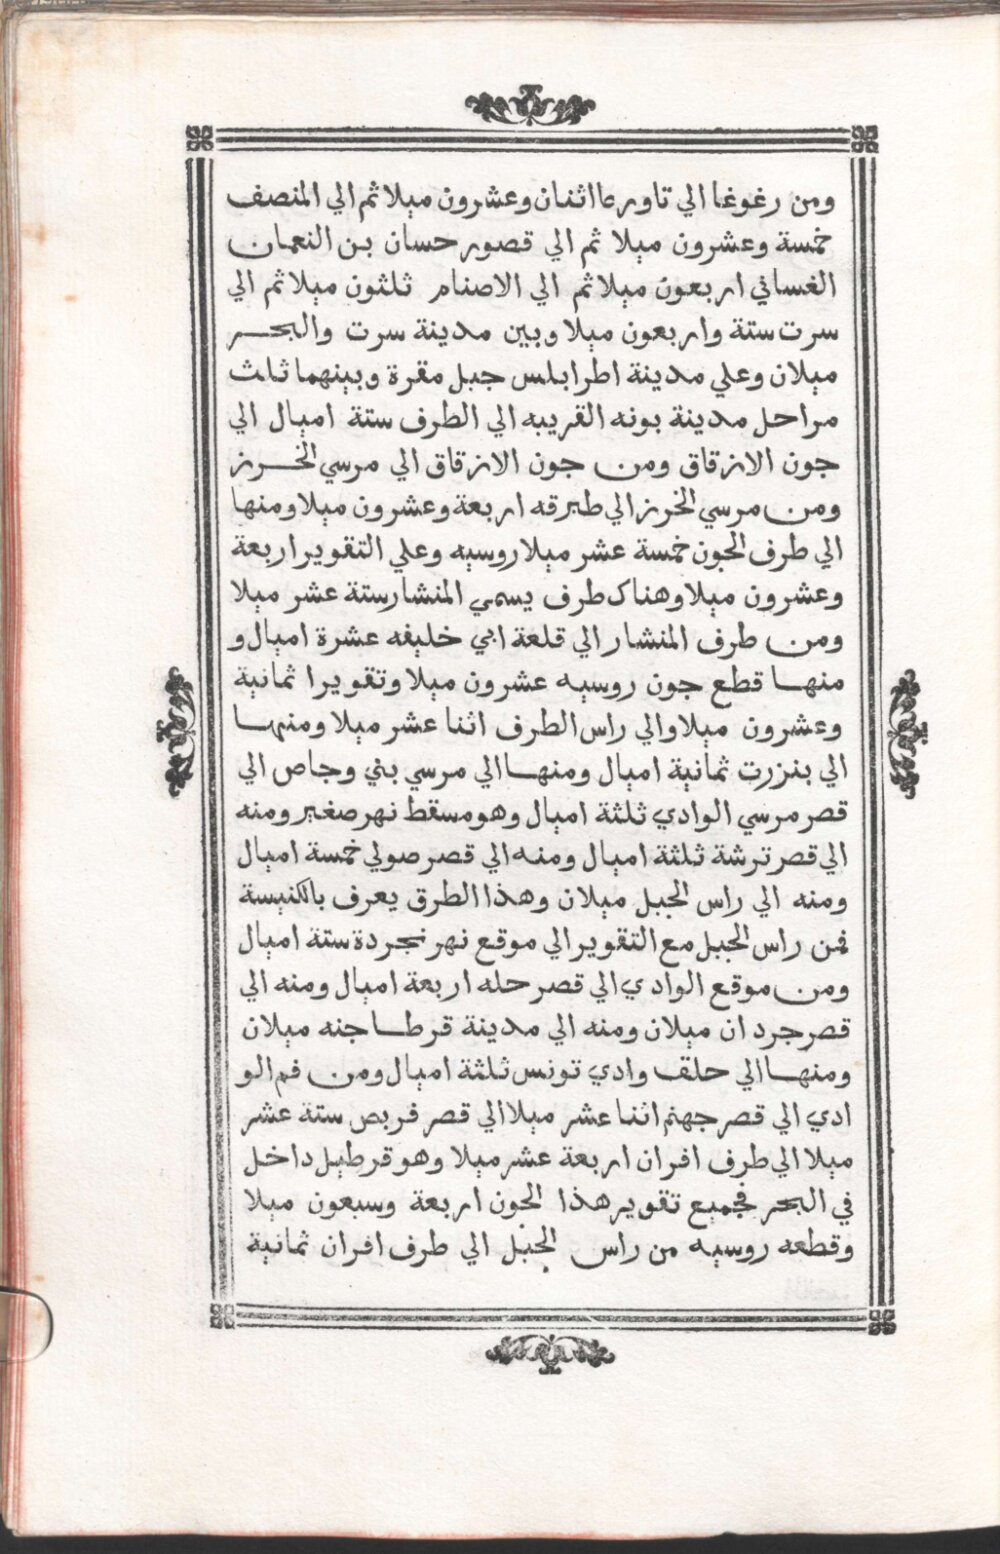 ومن رغوغا الي تاورغا اثنان وعشرون ميلا ثم الي المنصف
خمسة وعشرون ميلا ثم الي قصور حسان بن النعمان
الغساني اربعون ميلا ثم الي الاصنام ثلثون ميلا ثم الي
سرت ستة واربعون ميلا وبين مدينة سرت والبحر
ميلان وعلي مدينة اطرابلس جبل مقرة وبينهما ثلث
مراحل مدينة بونه القريبه الي الطرف ستة اميال الي
جون الازقاق ومن جون الازقاق الي مرسي الخرز
ومن مرسي الخرز الي طبرقه اربعة وعشرون ميلا ومنها
الي طرف الجون خمسة عشر ميلا روسيه وعلي التقوير اربعة
وعشرون ميلا وهناك طرف يسمي المنشار ستة عشر ميلا
ومن طرف المنشار الي قلعة ابي خليفه عشرة اميال و
منها قطع جون روسيه عشرون ميلا وتقويرا ثمانية
وعشرون ميلا والي راس الطرف اثنا عشر ميلا ومنها
الي بنزرت ثمانية اميال ومنها الي مرسي بني وجاص الي
قصر مرسي الوادي ثلثة اميال وهو مسقط نهر صغير ومنه
الي قصر ترشة ثلثة اميال ومنه الي قصر صولي خمسة اميال
ومنه الي راس الجبل ميلان وهذا الطرق يعرف بالكنيسة
فمن راس الجبل مع التقوير الي موقع نهر بجردة ستة اميال
ومن موقع الوادي الي قصر حله اربعة اميال ومنه الي
قصر جردان ميلان ومنه الي مدينة قرطاجنه ميلان
ومنها الي حلق وادي تونس ثلثة اميال ومن فم الو
ادي الي قصر جهنم اثنا عشر ميلا الي قصر قربص ستة عشر
ميلا الي طرف افران اربعة عشر ميلا وهو قرطيل داخل
في البحر فجميع تقوير هذا الجون اربعة وسبعون ميلا
وقطعه روسيه من راس الجبل الي طرف افران ثمانية